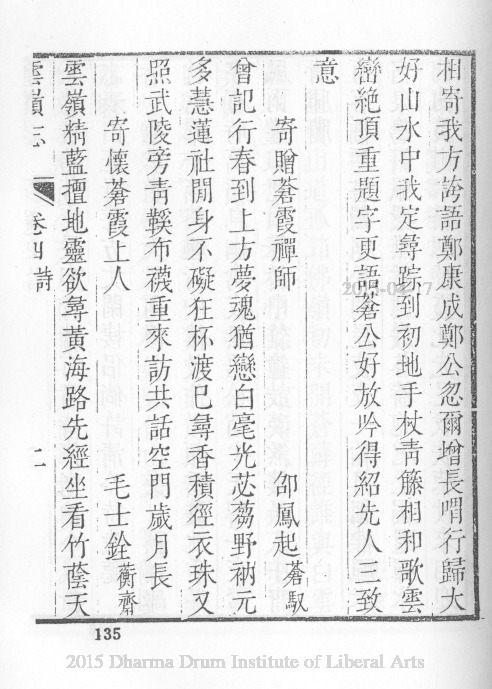 相寄我方誇語鄭康成鄭公忽爾增長喟行歸大
好山水中我定尋踪到初地手杖青籐相和歌雲
巒絶頂重題字更語蒼公好放吟得紹先人三致
意
寄贈蒼霞禪師 邵鳳起蒼馭
曾記行春到上方夢魂猶戀白毫光苾蒭野衲元
多慧蓮社閒身不礙狂杯渡巳尋香積徑衣珠又
照武陵旁青鞵布襪重來訪共話空門歲月長
寄懷蒼霞上人 毛士銓蘅齋
雲嶺精藍擅地靈欲尋黃海路先經坐看竹蔭天
雲嶺志 卷四詩 二
135
2015 Dharma Drum Institute of Liberal Arts